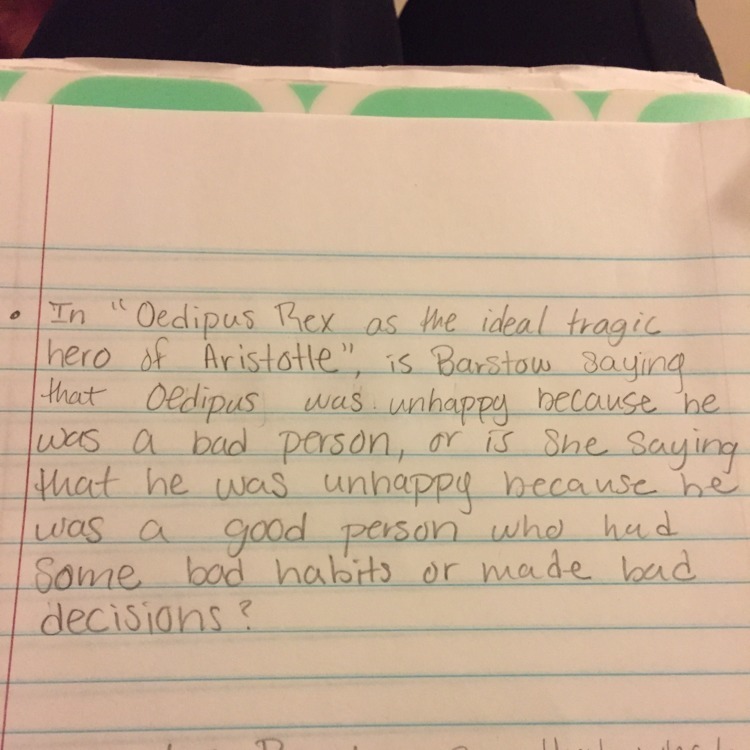 • In "Oedipus Rex as the ideal tragic
hero of Aristotle", is Barstow saying
that Oedipus was unhappy because he
was a bad person, or is she saying
that he was unhappy because he
was a good person who had
some bad habits or made bad
decisions?